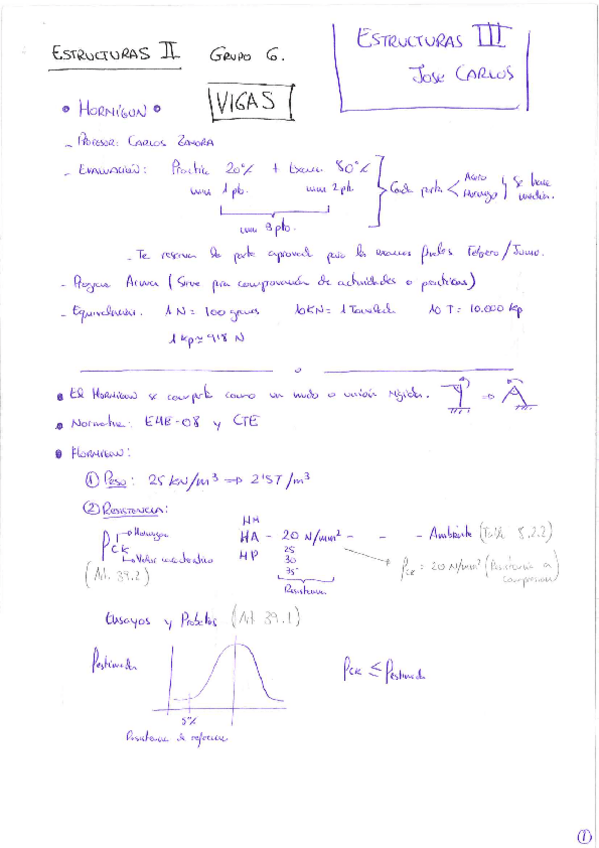 ESTRUCTURAS II GRUPO 6.
ESTRUCTURAS III
JOSE CARLOS
VIGAS
• HORMIGON •
- PROFESOR: CARLOS ZAMORA
- EVALUACIÓN: Practica 20% + Examen 80%
min 1 pto. min 2 pto.
Cada parte Acero Hormigon Se hace media.
min 3 pto.
- Te reservan la parte aprovada para los examenes finales Febrero / Junio.
- Programa (Sirve para comprovación de actividades o practicas)
- Equivalencias. 1 N = 100 gramos 10KN = 1 Tonelada 10 T = 10.000 Kp
1 Kp ≈ 9'8 N
• El HORMIGON se comporta como un nudo o unión rígidos.
• Normativa: EHE-08 y CTE
• HORMIGON:
① PESO: 25 KN/m³ ⇒ 2'5T/m³
② RESISTENCIA:
HM
HA - 20 N/mm² - - - Ambiente (Tabla 8.2.2)
HP
25
30
Resistencia
fck
Hormigon
Valor característico
(Art. 39.2)
fck = 20 N/mm² (Resistencia a compresion)
Ensayos y Probetas (Art 39.1)
festimada
fck ≤ festimada
5%
Resistencia de referencia
①